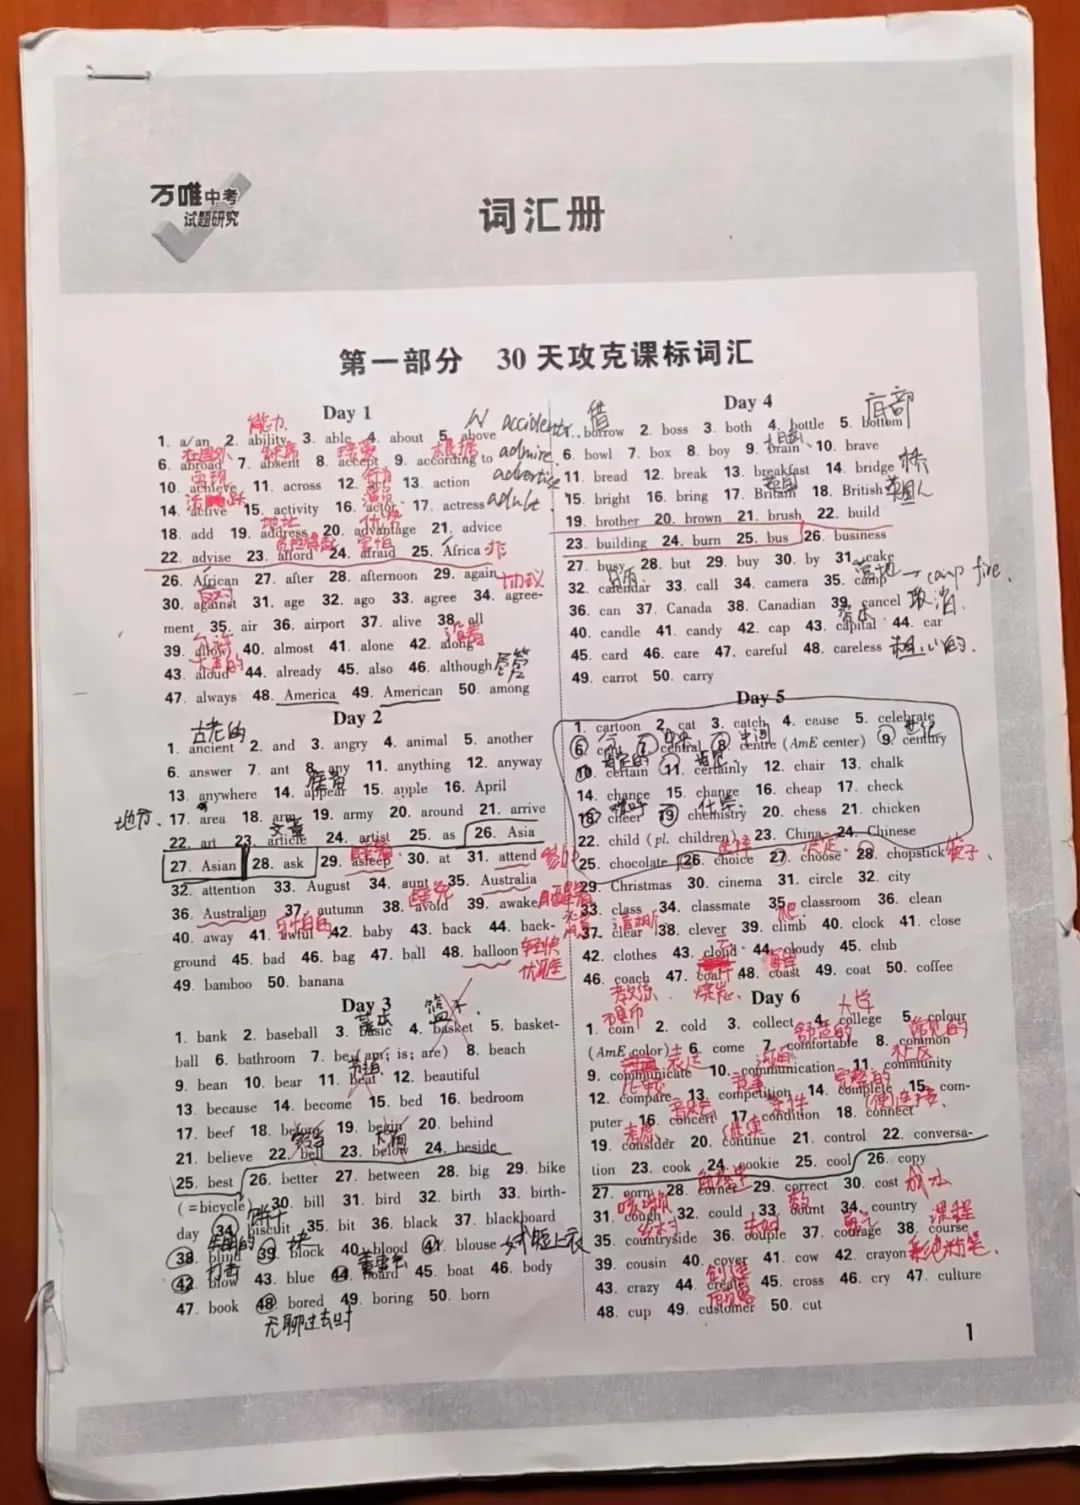 万唯中考
试题研究
词汇册
第一部分 30天攻克课标词汇
Day 1
能力
1. a/an 2. ability 3. able 4. about 5. above
在国外 缺席 接受 根据
6. abroad 7. absent 8. accept 9. according to
实现 行为
10. achieve 11. across 12. act 13. action
活跃 演员
14. active 15. activity 16. actor 17. actress
地址 优点
18. add 19. address 20. advantage 21. advice
负担得起 害怕
22. advise 23. afford 24. afraid 25. Africa 非
26. African 27. after 28. afternoon 29. again 协议
反对
30. against 31. age 32. ago 33. agree 34. agree-
ment 35. air 36. airport 37. alive 38. all
允许 沿着
39. allow 40. almost 41. alone 42. along
大声的
43. aloud 44. already 45. also 46. although 尽管
47. always 48. America 49. American 50. among
accident
admire
advertise
adult
Day 2
古老的
1. ancient 2. and 3. angry 4. animal 5. another
6. answer 7. ant 8. any 11. anything 12. anyway
13. anywhere 14. appear 15. apple 16. April
地方 17. area 18. arm 19. army 20. around 21. arrive
文章
22. art 23. article 24. artist 25. as 26. Asia
睡着
27. Asian 28. ask 29. asleep 30. at 31. attend 参加
32. attention 33. August 34. aunt 35. Australia
避免
36. Australian 37. autumn 38. avoid 39. awake 醒着
可怕的
40. away 41. awful 42. baby 43. back 44. back-
ground 45. bad 46. bag 47. ball 48. balloon
49. bamboo 50. banana
Day 3
基本 篮子
1. bank 2. baseball 3. basic 4. basket 5. basket-
ball 6. bathroom 7. be (am; is; are) 8. beach
节拍
9. bean 10. bear 11. beat 12. beautiful
13. because 14. become 15. bed 16. bedroom
17. beef 18. before 19. begin 20. behind
下面
21. believe 22. bell 23. below 24. beside
25. best 26. better 27. between 28. big 29. bike
(=bicycle) 30. bill 31. bird 32. birth 33. birth-
饼干
day 34. biscuit 35. bit 36. black 37. blackboard
块
38. blind 39. block 40. blood 41. blouse 女式短上衣
打击
42. blow 43. blue 44. board 45. boat 46. body
47. book 48. bored 49. boring 50. born
无聊过去时
Day 4
借 底部
1. borrow 2. boss 3. both 4. bottle 5. bottom
大脑
6. bowl 7. box 8. boy 9. brain 10. brave
11. bread 12. break 13. breakfast 14. bridge 桥
英国
15. bright 16. bring 17. Britain 18. British 英国人
19. brother 20. brown 21. brush 22. build
23. building 24. burn 25. bus 26. business
27. busy 28. but 29. buy 30. by 31. cake
日历 营地 → camp fire.
32. calendar 33. call 34. camera 35. camp
36. can 37. Canada 38. Canadian 39. cancel 取消
首都
40. candle 41. candy 42. cap 43. capital 44. car
45. card 46. care 47. careful 48. careless 粗心的
49. carrot 50. carry
Day 5
1. cartoon 2. cat 3. catch 4. cause 5. celebrate
分 中央 中间 世纪
6. cent 7. central 8. centre (AmE center) 9. century
肯定的 肯定
10. certain 11. certainly 12. chair 13. chalk
14. chance 15. change 16. cheap 17. check
欢呼 化学
18. cheer 19. chemistry 20. chess 21. chicken
22. child (pl. children) 23. China 24. Chinese
选择 选定
25. chocolate 26. choice 27. choose 28. chopstick 筷子
29. Christmas 30. cinema 31. circle 32. city
33. class 34. classmate 35. classroom 36. clean
清晰 爬
37. clear 38. clever 39. climb 40. clock 41. close
42. clothes 43. cloud 44. cloudy 45. club
海岸
46. coach 47. coal 48. coast 49. coat 50. coffee
教练 煤炭
Day 6
硬币 大学
1. coin 2. cold 3. collect 4. college 5. colour
舒适的 常见的
(AmE color) 6. come 7. comfortable 8. common
表达 沟通 社区
9. communicate 10. communication 11. community
比较 竞争 完整的
12. compare 13. competition 14. complete 15. com-
音乐会 条件 (使)连接
puter 16. concert 17. condition 18. connect
考虑 继续
19. consider 20. continue 21. control 22. conversa-
tion 23. cook 24. cookie 25. cool 26. copy
27. corn 28. corner 29. correct 30. cost 成本
咳嗽 数
31. cough 32. could 33. count 34. country
乡村 夫妇 勇气 课程
35. countryside 36. couple 37. courage 38. course
39. cousin 40. cover 41. cow 42. crayon 彩色粉笔
创造
43. crazy 44. create 45. cross 46. cry 47. culture
顾客
48. cup 49. customer 50. cut
1